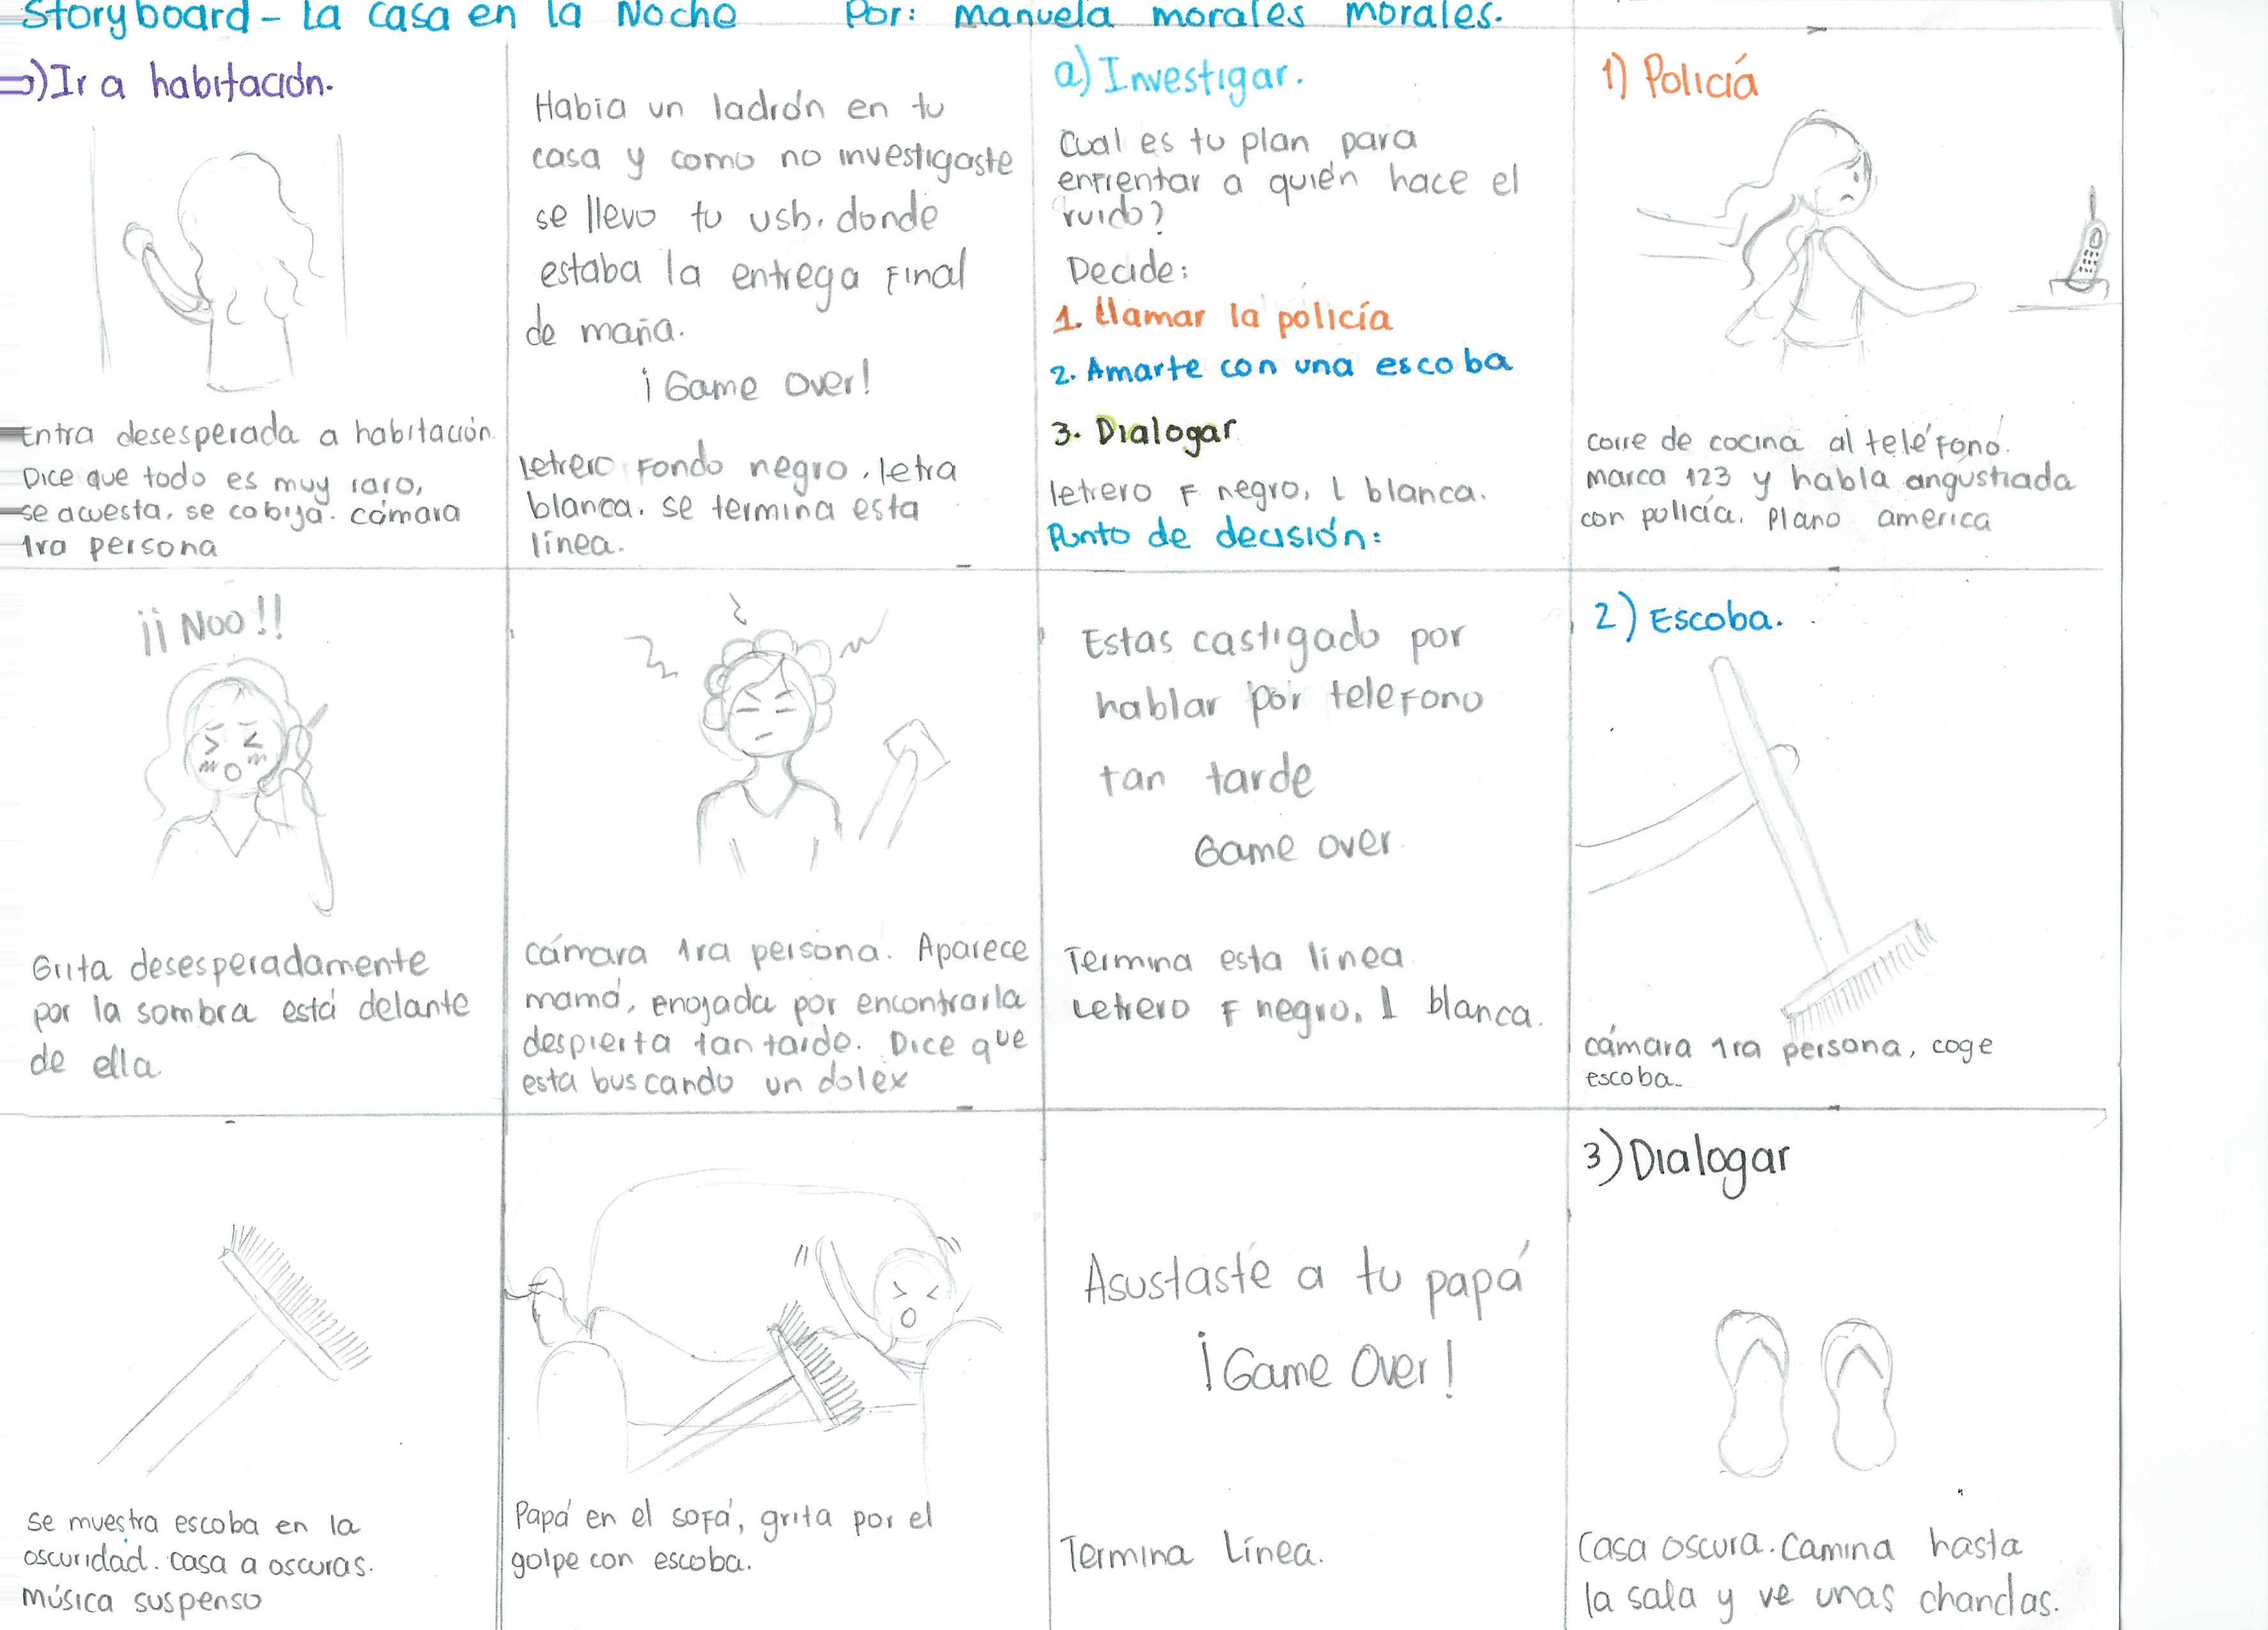 Storyboard - La casa en la Noche Por: manuela morales morales.
⇒) Ir a habitación.
Entra desesperada a habitación.
Dice que todo es muy raro,
se acuesta, se cobija. cámara
1ra persona
Habia un ladrón en tu
casa y como no investigaste
se llevo tu usb, donde
estaba la entrega Final
de maña.
¡Game Over!
letrero Fondo negro, letra
blanca. se termina esta
línea.
a) Investigar.
Cual es tu plan para
enfrentar a quién hace el
ruido?
Decide:
1. Llamar la policía
2. Amarte con una escoba
3. Dialogar
letrero F negro, L blanca.
Punto de decisión:
1) Policiá
corre de cocina al teléfono.
marca 123 y habla angustiada
con policía. Plano america
¡¡Noo!!
Grita desesperadamente
por la sombra está delante
de ella
cámara 1ra persona. Aparece
mamá, enojada por encontrarla
despierta tan tarde. Dice que
esta buscando un dolex
Estas castigado por
hablar por telefono
tan tarde
Game over
Termina esta línea
Letrero F negro, l blanca.
2) Escoba.
cámara 1ra persona, coge
escoba.
se muestra escoba en la
oscuridad. casa a oscuras.
Música suspenso
Papá en el sofá, grita por el
golpe con escoba.
Asustaste a tu papá
¡Game Over!
Termina Línea.
3) Dialogar
Casa oscura. Camina hasta
la sala y ve unas chanclas.